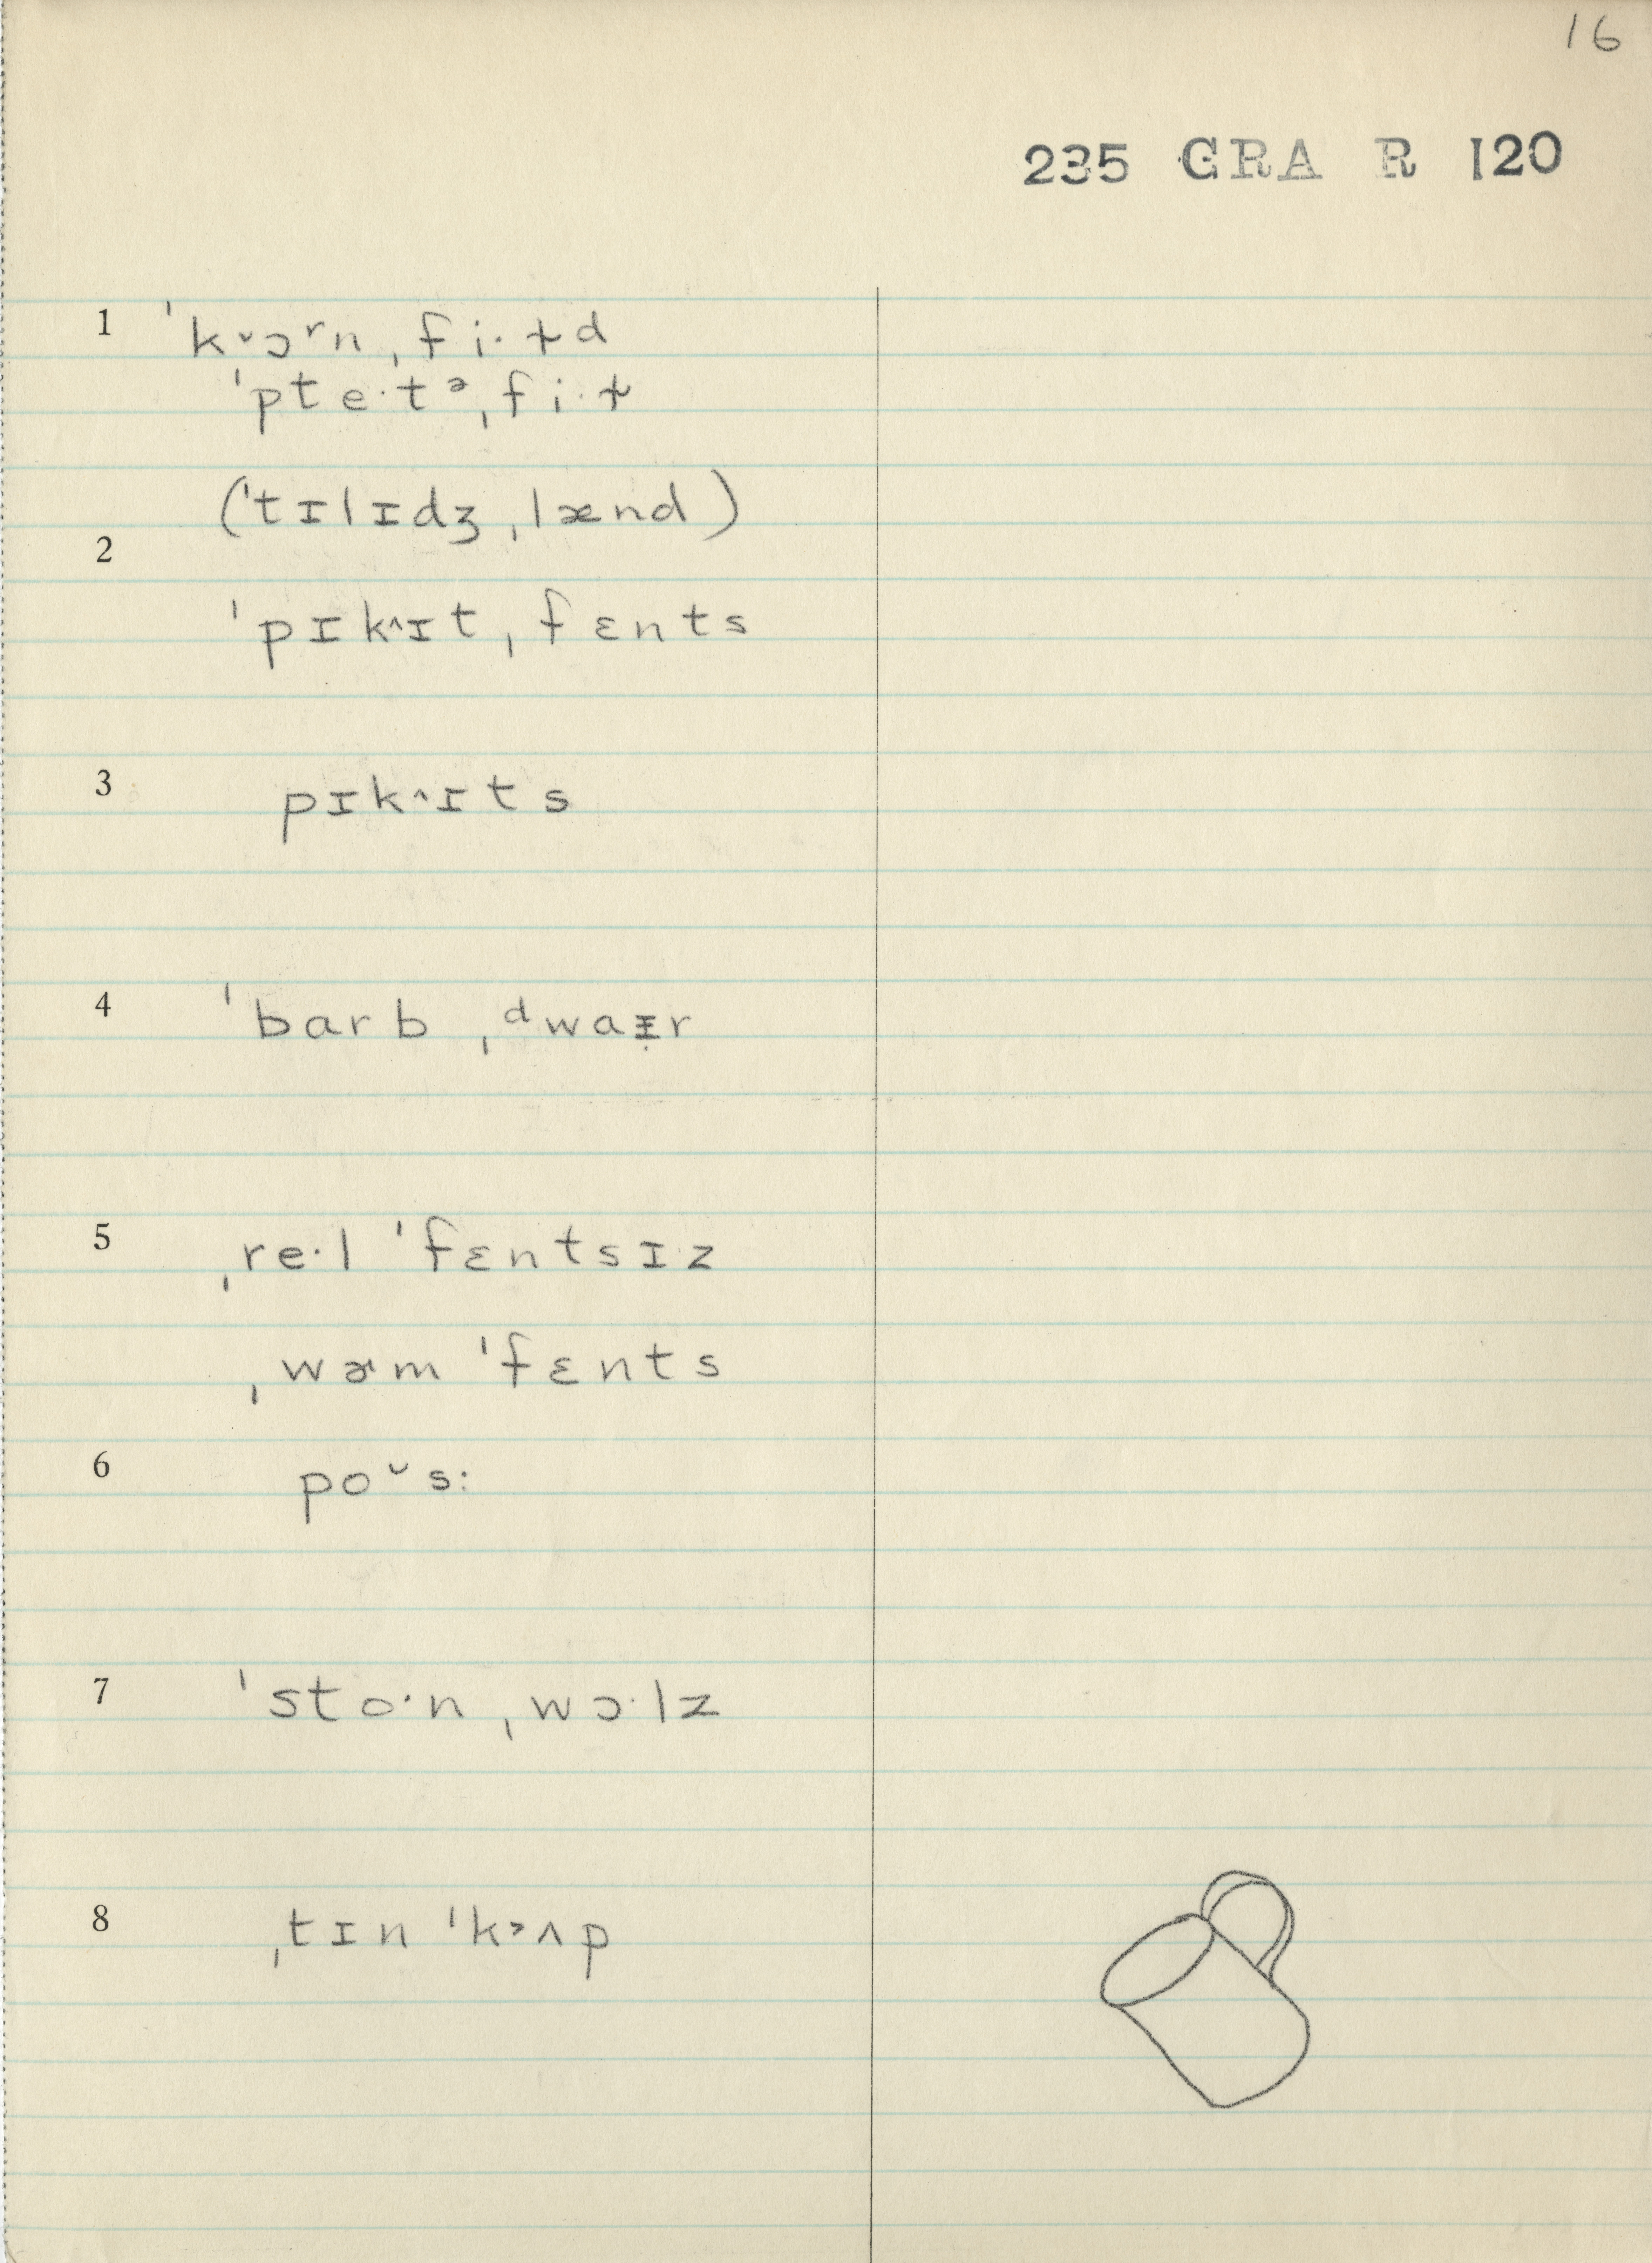 16
235 GRA R 120
1 ˈkᵛɔʳn ˌfi·ɫd
ˈpte·tᵊ ˌfi·ɫ
(ˈtɪlɪdʒ ˌlænd)
2
ˈpɪk^ɪt ˌfɛnts
3 pɪk^ɪts
4 ˈbarb ˌᵈwaɪ̵̣r
5 ˌre·l ˈfɛntsɪz
ˌwɚm ˈfɛnts
6 po˘s:
7 ˈsto·n ˌwɔ·lz
8 ˌtɪn ˈk˃ʌp